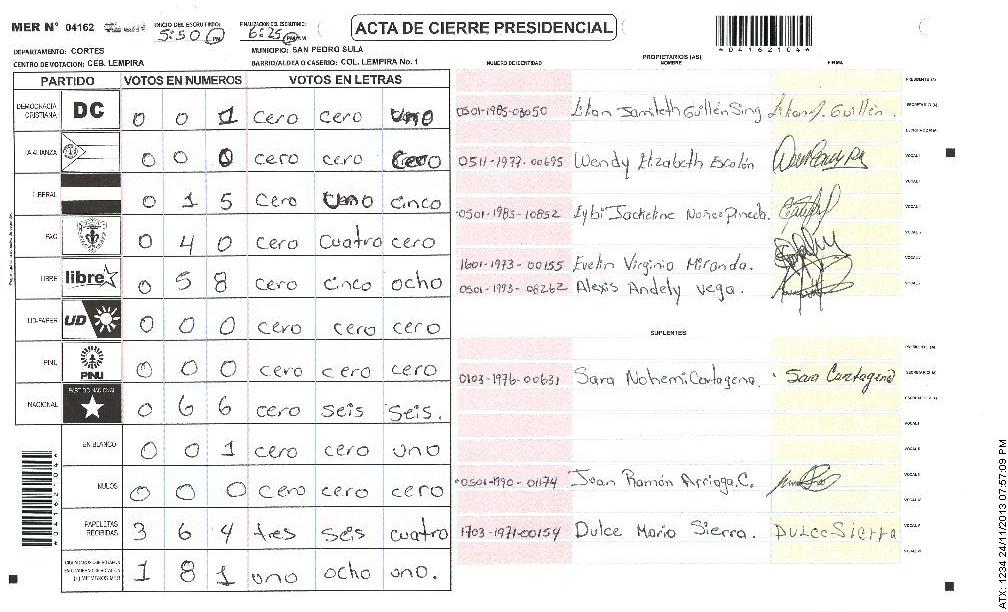 MER N° 04162
INICIO DEL ESCRUTINIO: 5:50 PM
FINALIZACION DEL ESCRUTINIO: 6:25 PM
ACTA DE CIERRE PRESIDENCIAL
0416210
DEPARTAMENTO: CORTES
MUNICIPIO: SAN PEDRO SULA
CENTRO DE VOTACION: CEB. LEMPIRA
BARRIO/ALDEA O CASERIO: COL. LEMPIRA No. 1
PARTIDO VOTOS EN NUMEROS VOTOS EN LETRAS
DEMOCRACIA CRISTIANA DC 0 0 1 cero cero uno
LA ALIANZA 0 0 0 cero cero cero
LIBERAL 0 1 5 cero uno cinco
FAC 0 4 0 cero cuatro cero
LIBRE libre 0 5 8 cero cinco ocho
UD-FAPER UD 0 0 0 cero cero cero
PINU PINU 0 0 0 cero cero cero
NACIONAL PARTIDO NACIONAL 0 6 6 cero seis seis.
EN BLANCO 0 0 1 cero cero uno
NULOS 0 0 0 cero cero cero
PAPELETAS RECIBIDAS 3 6 4 tres seis cuatro
1 8 1 uno ocho uno.
NUMERO DE IDENTIDAD PROPIETARIOS (AS) NOMBRE FIRMA
PRESIDENTE (A)
0501-1985-03050 Lilian Jamileth Guillén Sing Lilian J. Guillén. SECRETARIO (A)
0511-1977-00695 Wendy Elizabeth Escolón VOCAL I
0501-1985-10852 Eybi Jackeline Nuñez Pineda.
1601-1973-00155 Evelin Virginia Miranda.
0501-1993-08262 Alexis Andely Vega.
SUPLENTES
0103-1976-00631 Sara Nohemi Cartagena. Sara Cartagena SECRETARIO (A)
0501-1990-01174 Juan Ramón Arriaga C.
1703-1971-00154 Dulce Maria Sierra. DULce Sierra
ATX: 1234 24/11/2013 07:57:09 PM